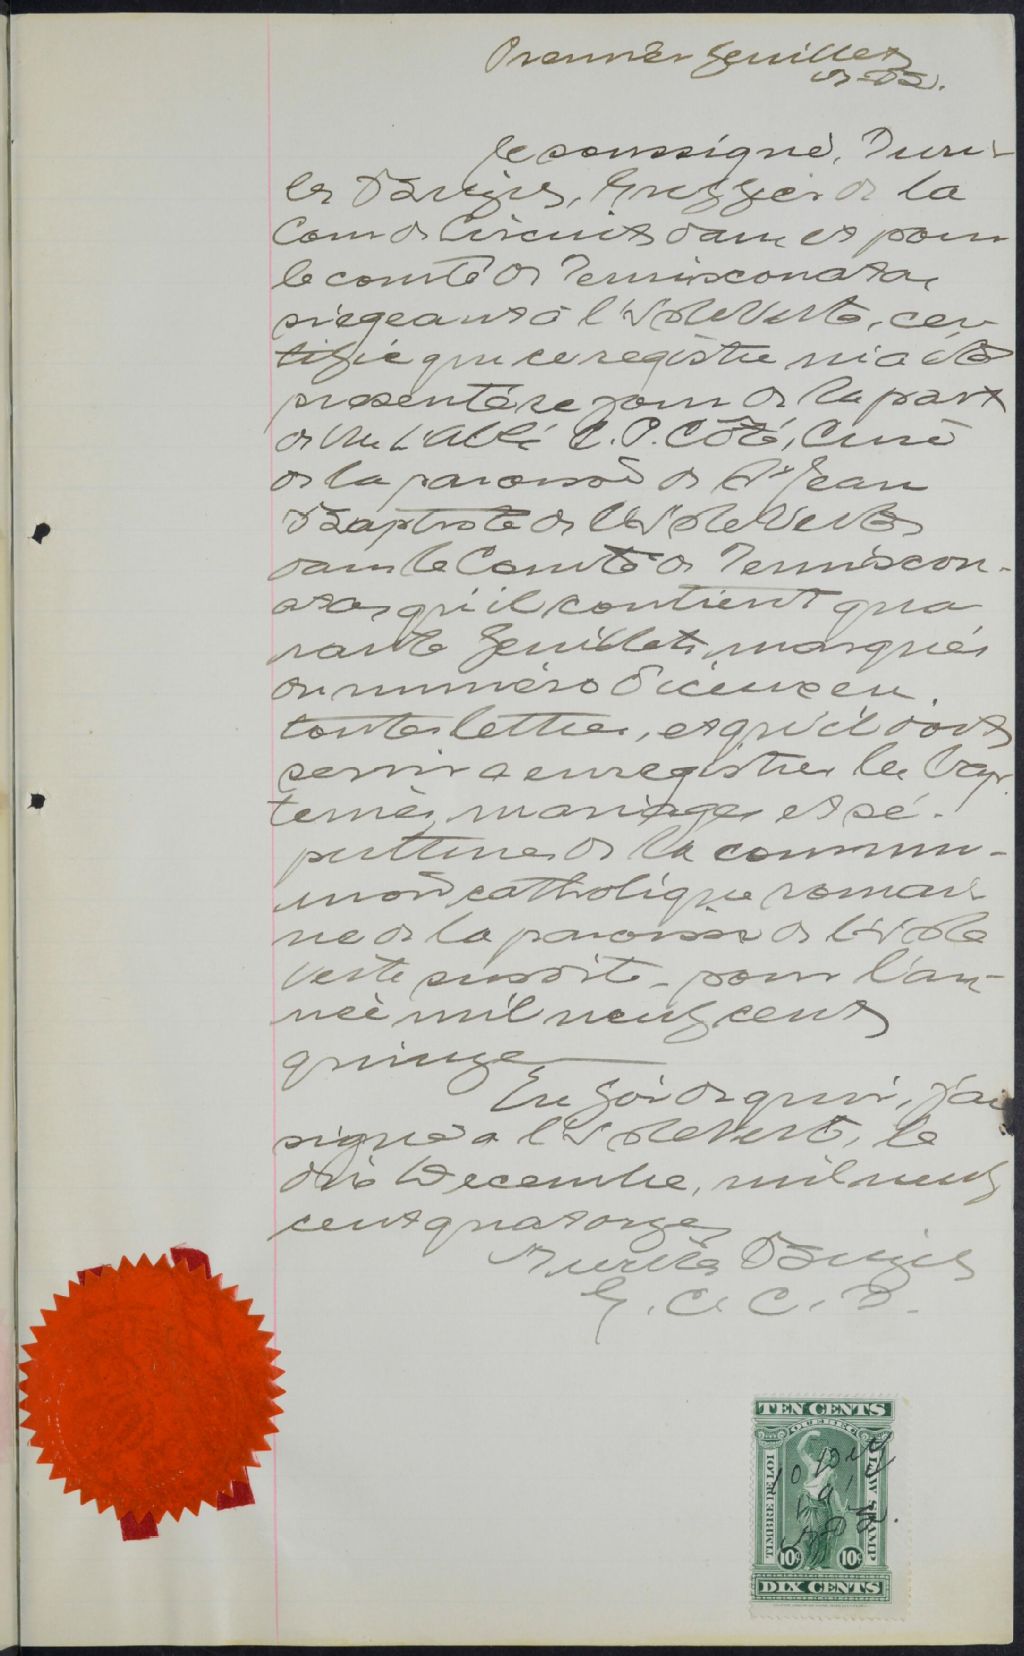 Premier feuillet
A. B.
Je soussigné,
Greffier de la
Cour de Circuit dans et pour
le comté de Temisconata,
siégeant à l'Isle Verte, cer
tifie que ce registre m'a été
présenté ce jour de la part
de Mr l'Abbé C. P. Côté, Curé
de la paroisse de St Jean
Baptiste de l'Isle Verte
dans le Comté de Temiscon-
ata, qu'il contient qua
rante feuillets, marqués
du numéro d'iceux en
toutes lettres, et qu'il doit
servir a enregistrer les bap
temes, mariages et sé-
pultures de la commu-
nion catholique romai-
ne de la paroisse de l'Isle
Verte susdite - pour l'an-
née mil neuf cent
quinze
En foi de quoi, j'ai
signé a l'Isle Verte, le
dix Decembre, mil neuf
cent quatorze
G. C. C. T.
TEN CENTS
QUEBEC
TIMBRE DE LOI
LAW STAMP
10 Dec
10¢ 10¢
DIX CENTS